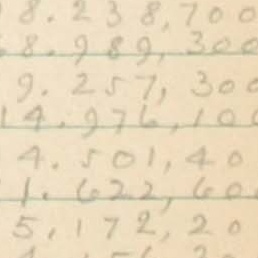 8.238,700
8.989,300
9.257,300
14.976,100
4.501,40
1.622,600
5,172,20